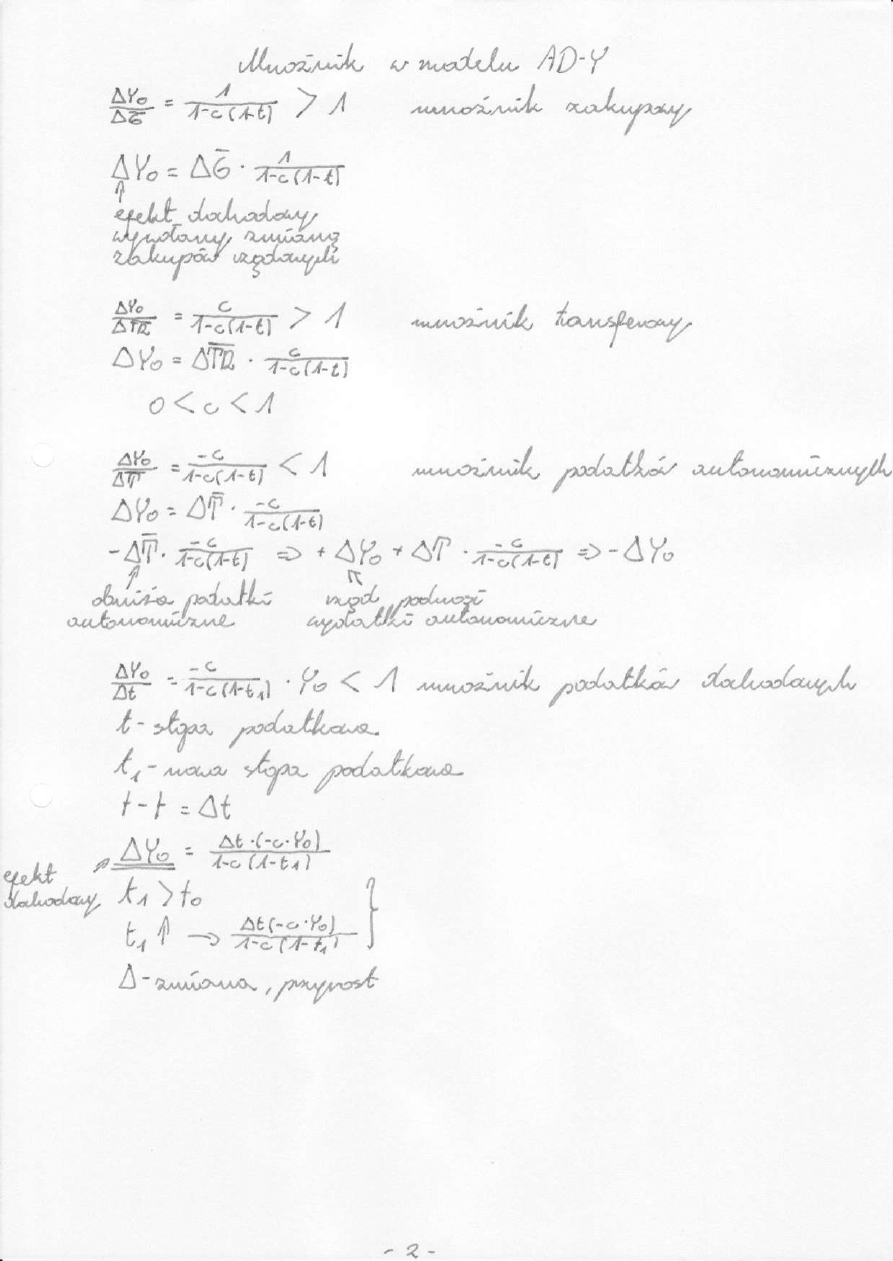 Mnożnik w modelu AD-Y
ΔY₀/ΔG̅ = 1/(1-c(1-t)) > 1 mnożnik zakupowy
ΔY₀ = ΔG̅ · 1/(1-c(1-t))
↑
efekt dochodowy
wywołany zmianą
zakupów rządowych
ΔY₀/ΔT̅R̅ = c/(1-c(1-t)) > 1 mnożnik transferowy
ΔY₀ = ΔT̅R̅ · c/(1-c(1-t))
0 < c < 1
ΔY₀/ΔT̅ = -c/(1-c(1-t)) < 1 mnożnik podatków autonomicznych
ΔY₀ = ΔT̅ · -c/(1-c(1-t))
-ΔT̅ · -c/(1-c(1-t)) => +ΔY₀ + ΔT · -c/(1-c(1-t)) => -ΔY₀
obniża podatki rząd podnosi
autonomiczne wydatki autonomiczne
ΔY₀/Δt = -c/(1-c(1-t₁)) · Y₀ < 1 mnożnik podatków dochodowych
t - stopa podatkowa
t₁ - nowa stopa podatkowa
t - t = Δt
ΔY₀ = Δt·(-c·Y₀)/(1-c(1-t₁))
efekt
dochodowy
t₁ > t₀
t₁ ↑ → Δt(-c·Y₀)/(1-c(1-t₁))
Δ - zmiana, przyrost
- 2 -